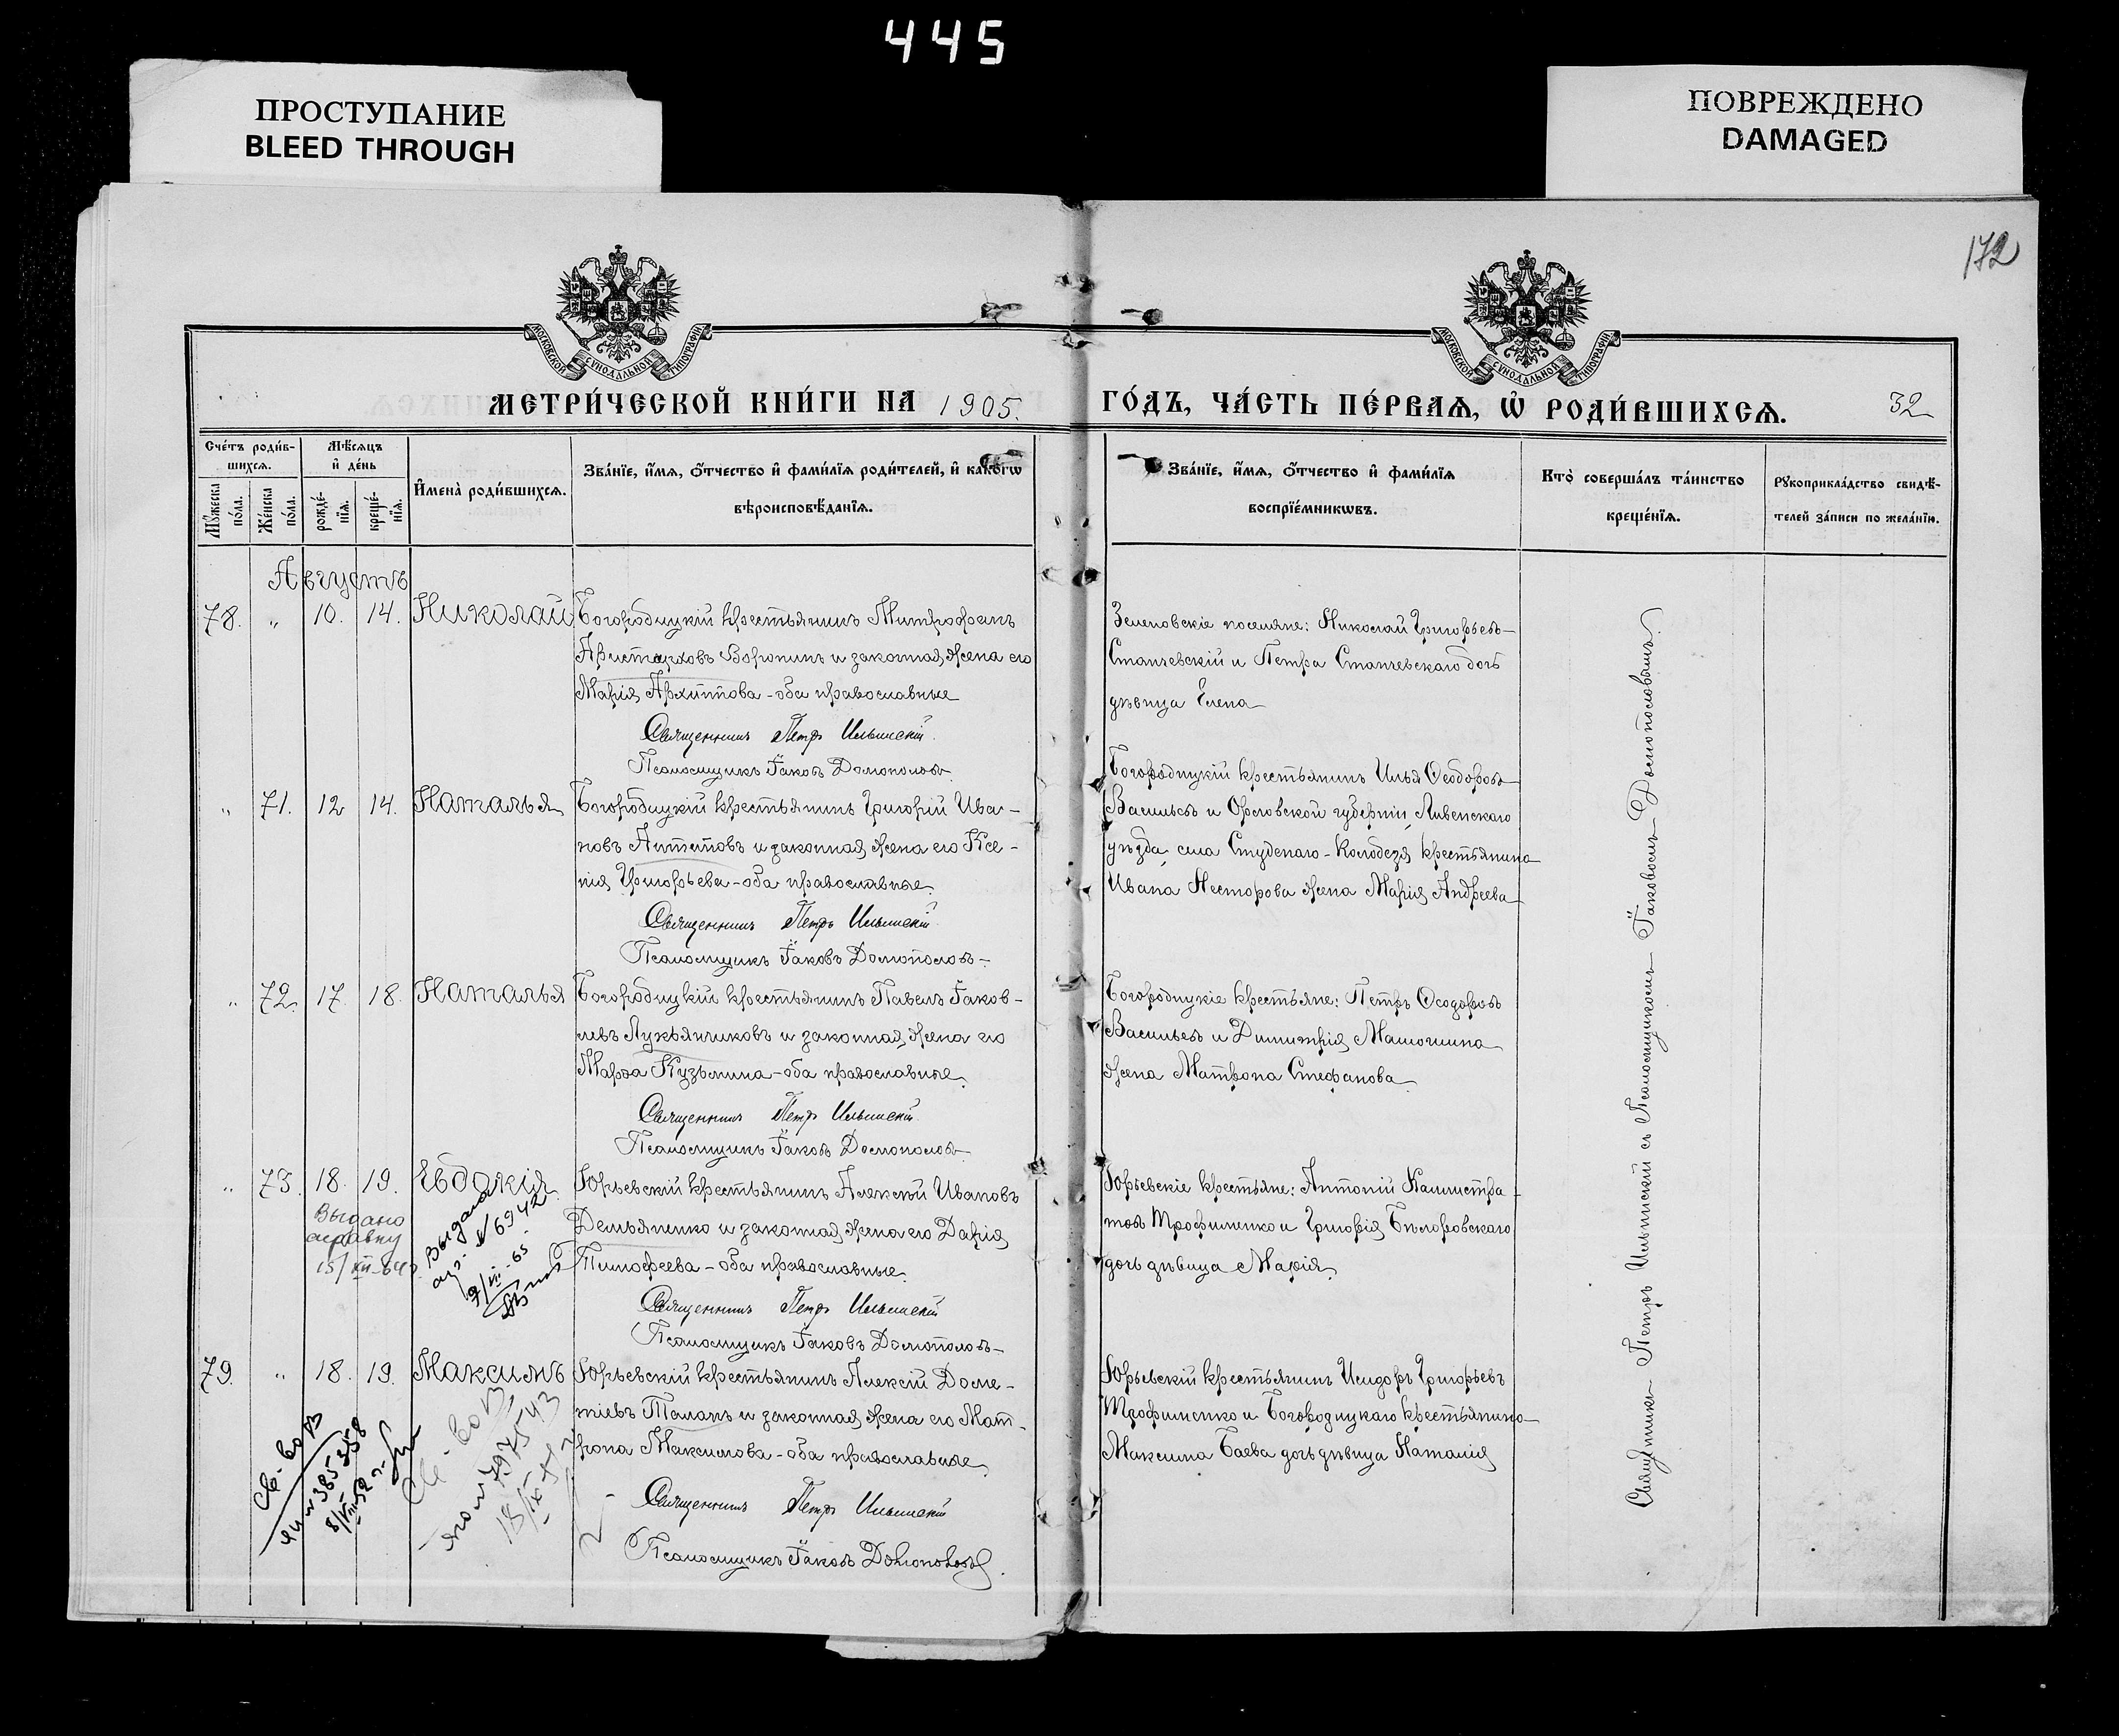 445
ПРОСТУПАНИЕ
BLEED THROUGH
ПОВРЕЖДЕНО
DAMAGED
172
МОСКОВСКОЙ СѴНОДАЛЬНОЙ ТИПОГРАФІИ
МОСКОВСКОЙ СѴНОДАЛЬНОЙ ТИПОГРАФІИ
МЕТРИ́ЧЕСКОЙ КНИ́ГИ НА 1905.
ГО́ДЪ, ЧА́СТЬ ПЕ́РВАѦ, Ѡ҆ РОДИ́ВШИХСѦ.
32
Сче́тъ роди́в-
шихсѧ.
Мѣ́сѧцъ
и҆ де́нь
Мꙋ́жеска
по́ла.
Же́нска
по́ла.
рожде́-
нїѧ.
креще́-
нїѧ.
И҆мена̀ роди́вшихсѧ.
Зва́нїе, и҆́мѧ, ѻ҆́тчество и҆ фами́лїѧ роди́телей, и҆ како́гѡ
вѣроисповѣ́данїѧ.
Зва́нїе, и҆́мѧ, ѻ҆́тчество и҆ фами́лїѧ
воспрїе́мникѡвъ.
Кто̀ соверша́лъ та́инство
креще́нїѧ.
Рꙋкоприкла́дство свидѣ́-
телей за́писи по жела́нїю.
Августъ
78. " 10. 14. Николай
Богородицкій крестьянинъ Митрофанъ
Аристарховъ Воронинъ и законная жена его
Марія Архиппова - оба православные
Священникъ Петръ Ильинскій
Псаломщикъ Іаковъ Домополовъ
Зеленовскіе поселяне: Николай Григорьевъ
Станчевскій и Петра Станчевскаго дочь
дѣвица Елена
" 71. 12 14. Наталья
Богородицкій крестьянинъ Григорій Ива-
новъ Антиповъ и законная жена его Ксе-
нія Григорьева - оба православные.
Священникъ Петръ Ильинскій
Псаломщикъ Іаковъ Домополовъ
Богородицкій крестьянинъ Илья Ѳеодоровъ
Васильевъ и Орловской губерніи, Ливенскаго
уѣзда, села Студенаго-Колодезя крестьянина
Ивана Несторова жена Марія Андреева
" 72. 17. 18. Наталья
Богородицкій крестьянинъ Павелъ Іаков-
левъ Лукьянчиковъ и законная жена его
Марѳа Кузьмина - оба православные.
Священникъ Петръ Ильинскій
Псаломщикъ Іаковъ Домополовъ
Богородицкіе крестьяне: Петръ Ѳеодоровъ
Васильевъ и Димитрія Матюшина
жена Матрона Стефанова
" 73. 18. 19. Евдокія
Юрьевскій крестьянинъ Алексѣй Ивановъ
Демьяненко и законная жена его Дарія
Тимофеева - оба православные.
Священникъ Петръ Ильинскій
Псаломщикъ Іаковъ Домополовъ
Юрьевскіе крестьяне: Антоній Каллистра-
товъ Трофименко и Григорія Билоровскаго
дочь дѣвица Марія
Выдано
справку
15/XII-64
Выдана
№ 6942
9/VII-65.
79. " 18. 19. Максимъ
Юрьевскій крестьянинъ Алексій Доме-
тіевъ Таланъ и законная жена его Мат-
рона Максимова - оба православные.
Священникъ Петръ Ильинскій
Псаломщикъ Іаковъ Домополовъ.
Юрьевскій крестьянинъ Исидоръ Григорьевъ
Трофименко и Богородицкаго крестьянина
Максима Баева дочь дѣвица Наталія
Св-во
385358
8/VIII-52 г.
Св-во
797543
18/IX
Священникъ Петръ Ильинскій съ Псаломщикомъ Іаковомъ Домополовымъ.